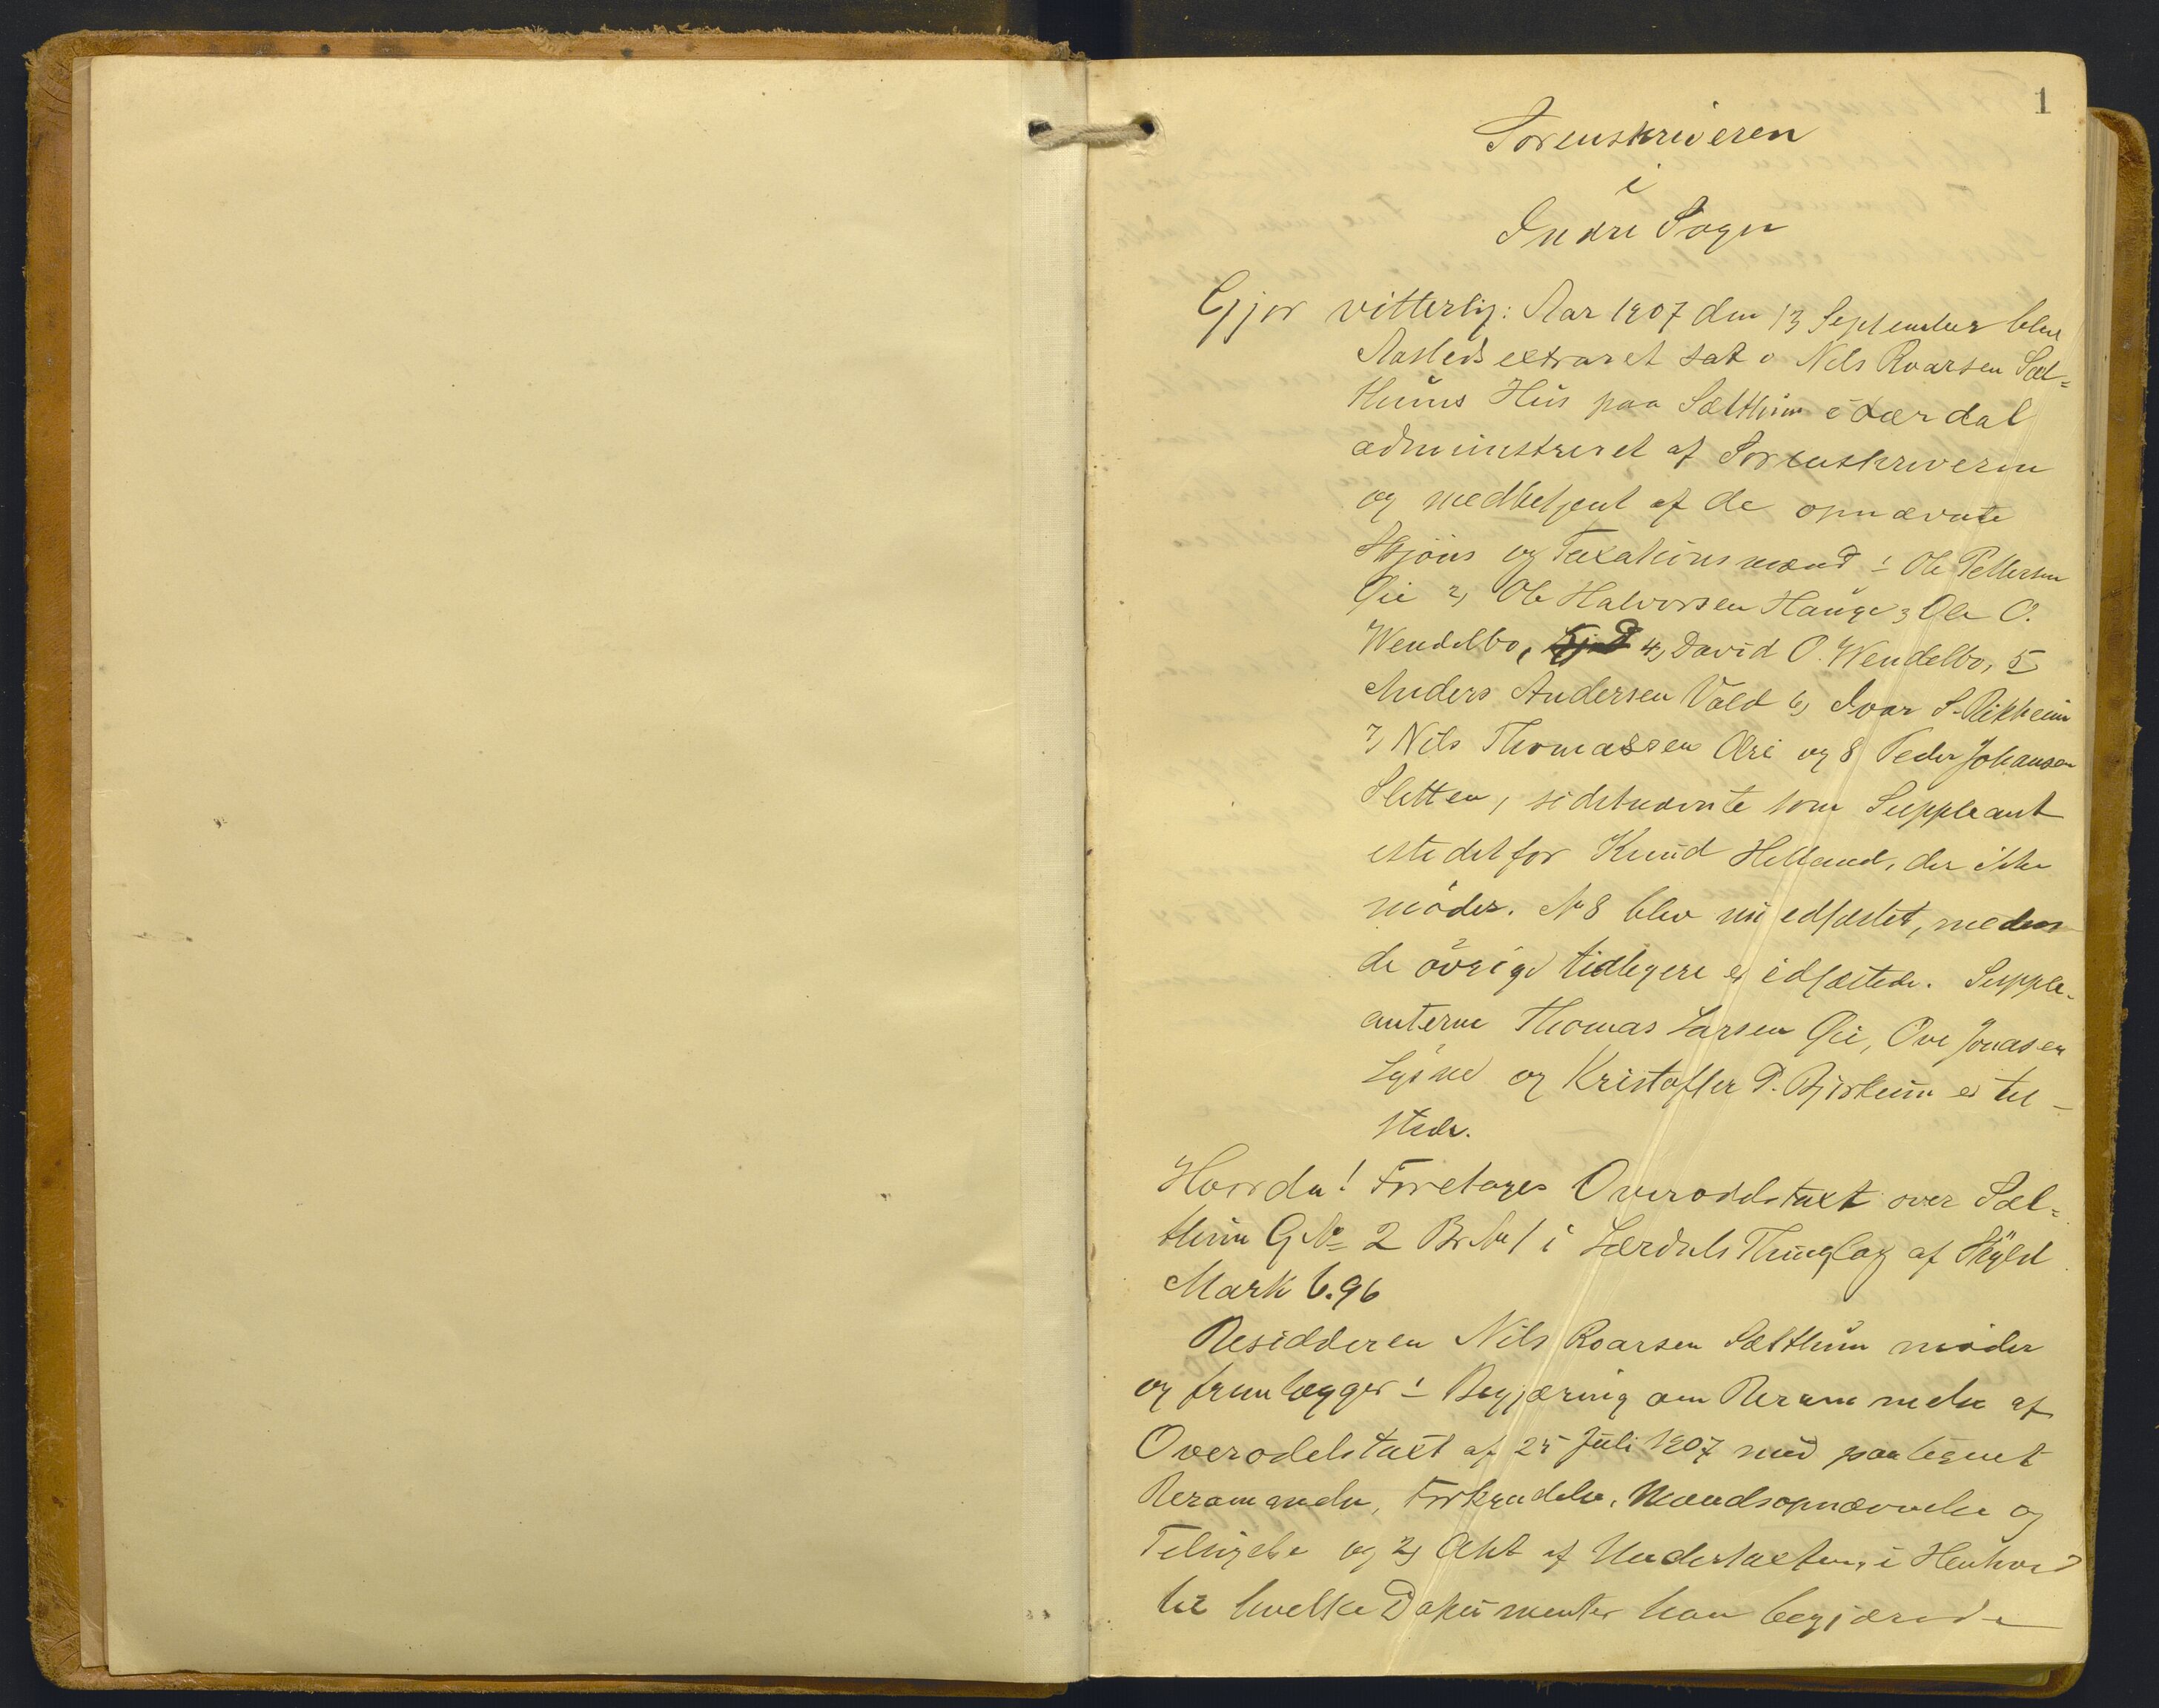 1
Sorenskriveren
i
Indre Sogn
Gjør vitterlig: Aar 1907 den 13 September blev
Aastedsextraret sat i Nils Roarsen Sæl-
thuns Hus paa Sælthun i Lærdal
administreret af Sorenskriveren
og medbetjent af de opnævnte
Skjöns og Taxationsmænd: 1 Ole Pettersen
Øie 2, Ole Halvorsen Hauge 3 Ole O.
Wendelbo, 4, David O. Wendelbo, 5,
Anders Andersen Vold 6, Ivar S. Rikheim
7, Nils Thomassen Øri og 8 Peder Johansen
Sletten, sidstnævnte som Suppleant
istedetfor Knud Helland, der ikke
möder. No 8 blev nu edfæstet, medens
de övrige tidligere er edfæstede. Supple-
anterne Thomas Larsen Øie, Ove Jonasen
Lysne og Kristoffer P. Bjørkum er til-
stede.
Hvorda! Foretoges Overodelstaxt over Sæl-
thun G No 2 Br No 1 i Lærdals Thinglag af Skyld
Mark 6.96
Besidderen Nils Roarsen Sælthun möder
og fremlægger 1 Begjæring om Berammelse af
Overodelstaxt af 25 Juli 1907 med paategnet
Berammelse, Forkyndelse, Mandsopnævnelse og
Tilsigelse og 2, Akt af Undertaxten, i Henhold
til hvilke Dokumenter han begjærede